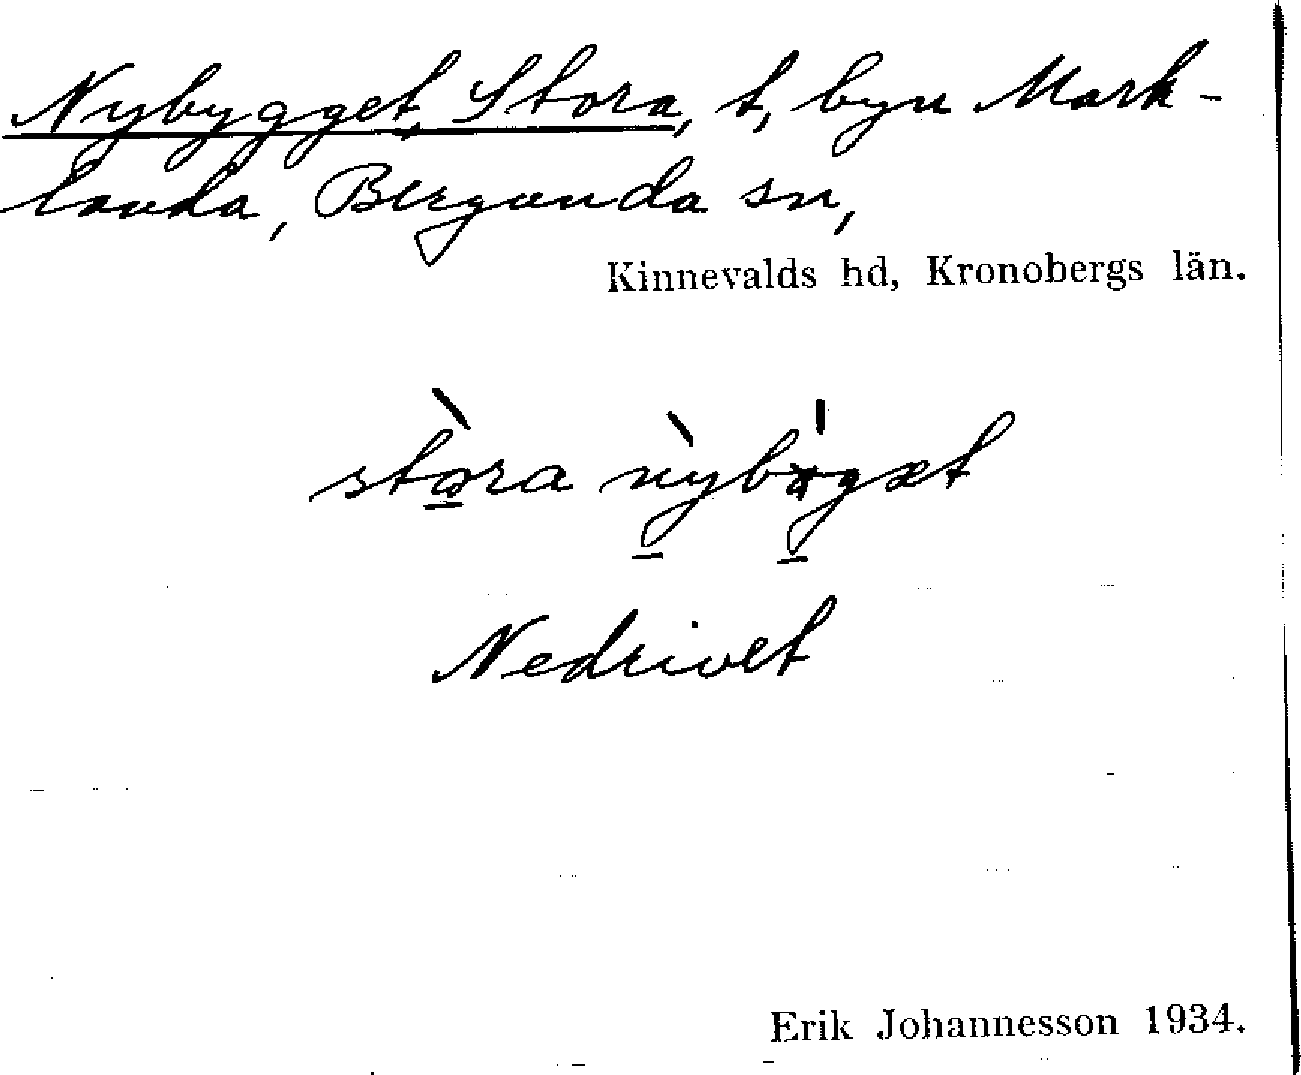 Nybygget, Stora, t, byn Mark-
landa, Bergunda sn,
Kinnevalds hd, Kronobergs län.
stòra nỳbýgæt
Nedrivet
Erik Johannesson 1934.